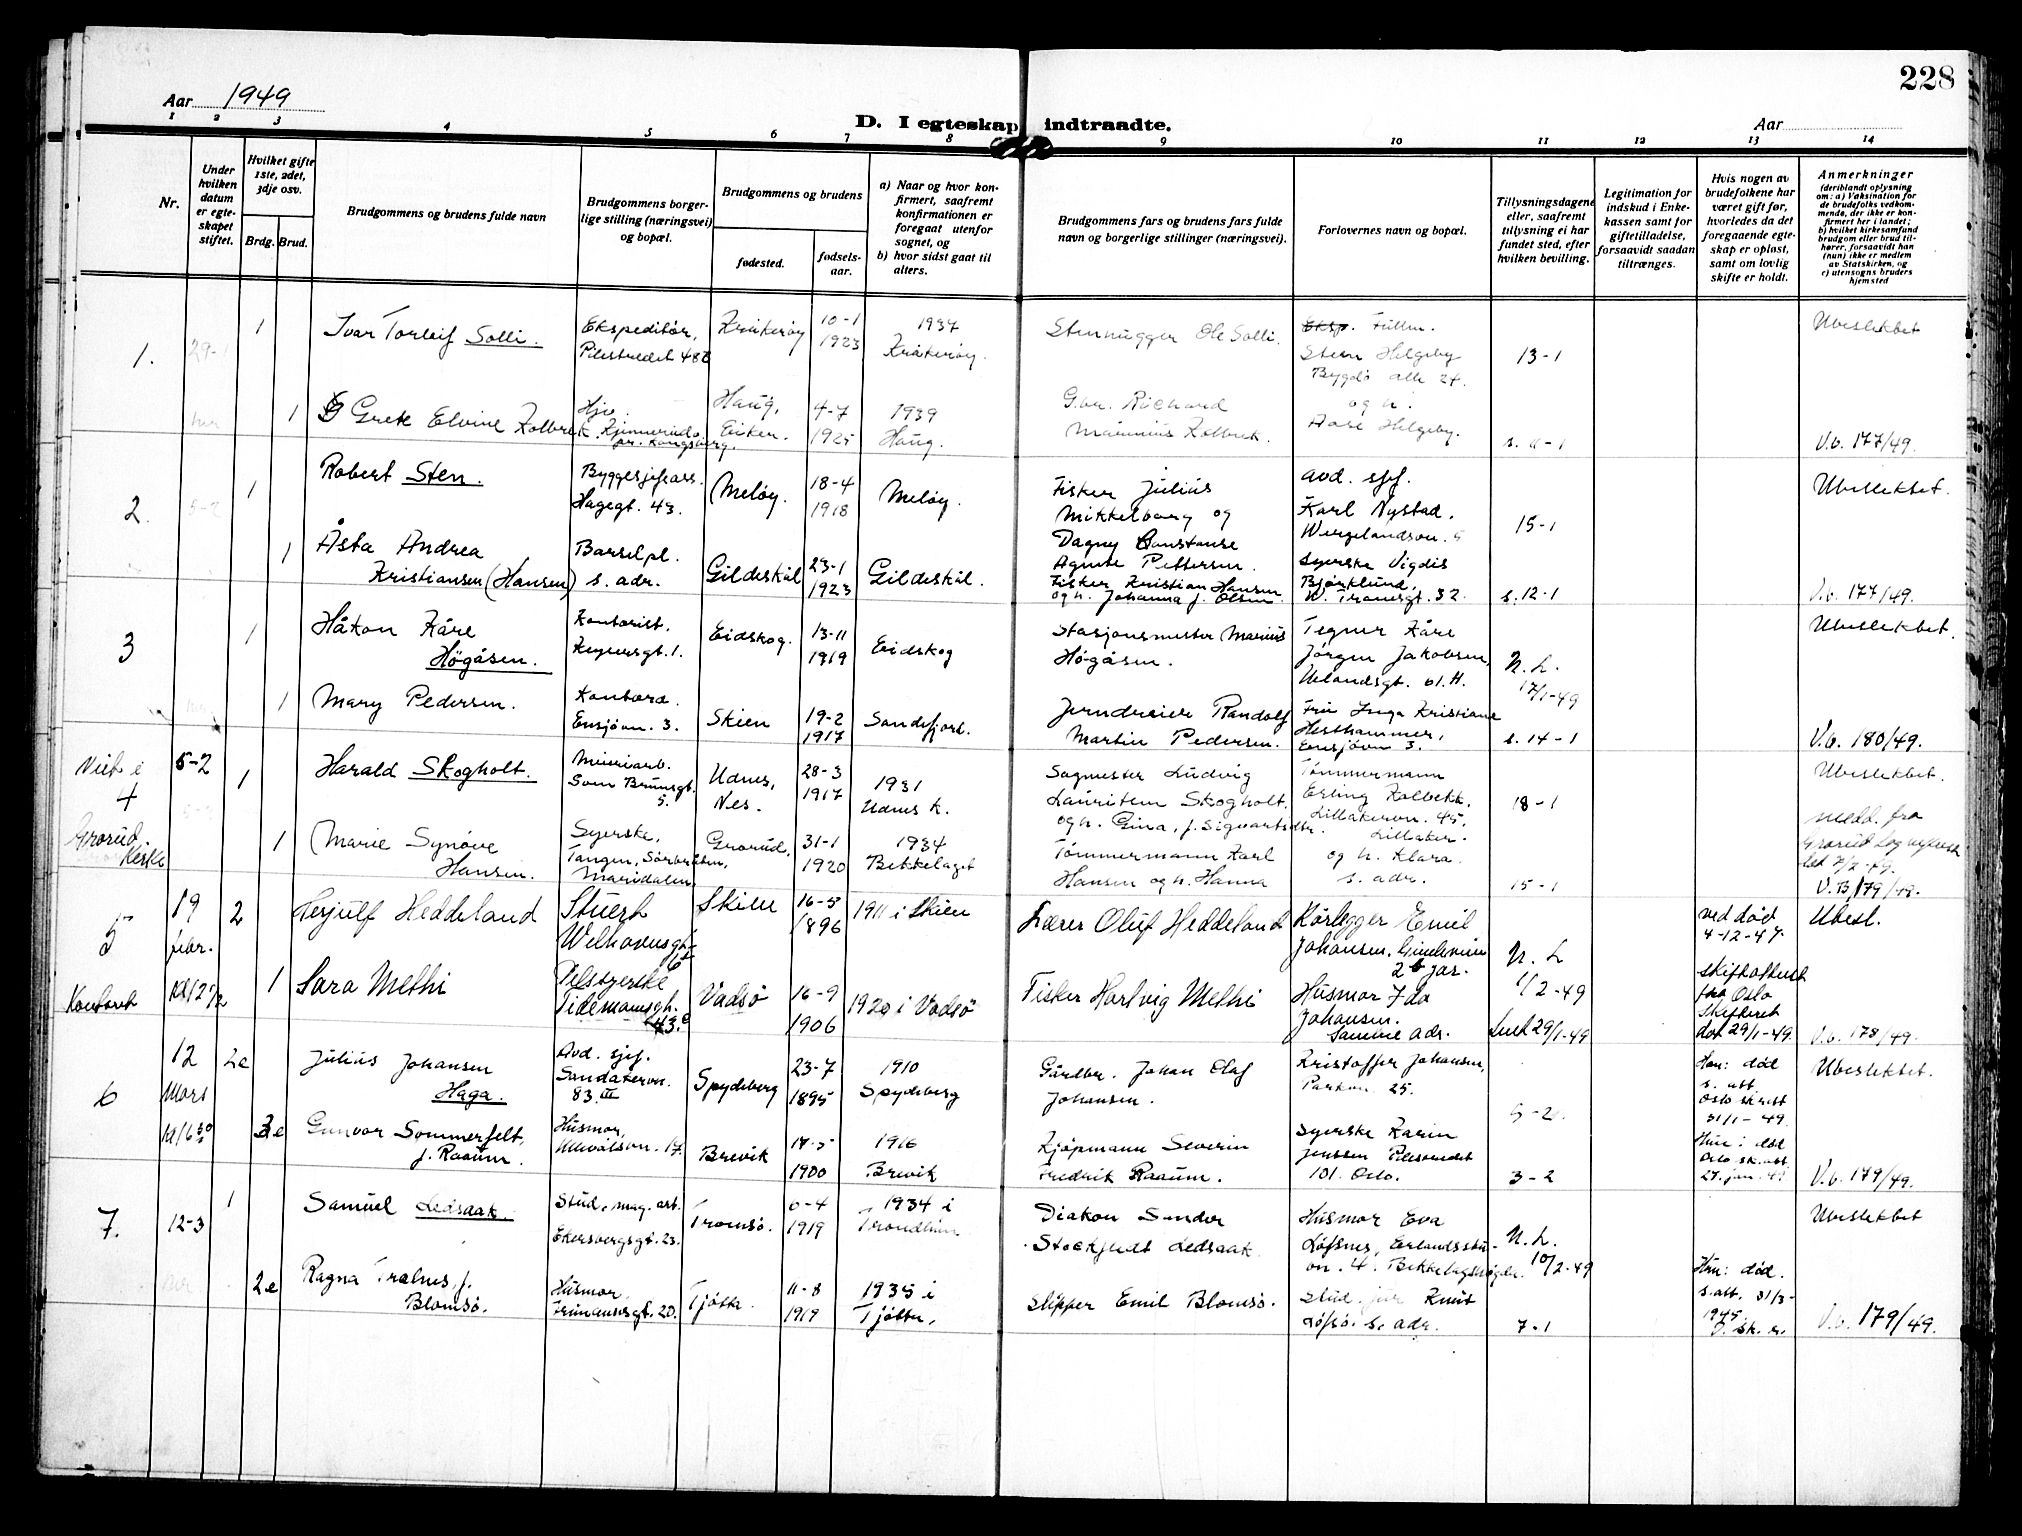 228
Aar 1949
D. I egteskap indtraadte.
Aar
1 2 3 4 5 6 7 8 9 10 11 12 13 14
Nr.
Under hvilken datum er egteskapet stiftet.
Hvilket gifte 1ste, 2det, 3dje osv.
Brdg. Brud.
Brudgommens og brudens fulde navn
Brudgommens borgerlige stilling (næringsvei) og bopæl.
Brudgommens og brudens
fødested.
fødselsaar.
a) Naar og hvor konfirmert, saafremt konfirmationen er foregaat utenfor sognet, og
b) hvor sidst gaat til alters.
Brudgommens fars og brudens fars fulde navn og borgerlige stillinger (næringsvei).
Forlovernes navn og bopæl.
Tillysningsdagene eller, saafremt tillysning ei har fundet sted, efter hvilken bevilling.
Legitimation for indskud i Enkekassen samt for giftetilladelse, forsaavidt saadan tiltrænges.
Hvis nogen av brudefolkene har været gift før, hvorledes da det foregaaende egteskap er opløst, samt om lovlig skifte er holdt.
Anmerkninger
(deriblandt oplysning om: a) Vaksination for de brudefolks vedkommende, der ikke er konfirmert her i landet; b) hvilket kirkesamfund brudgom eller brud tilhører, forsaavidt han (hun) ikke er medlem av Statskirken, og c) utensogns bruders hjemsted
1. 29-1 1 Ivar Torleif Solli. Ekspeditör, Pilestredet 48 Kråkeröy 10-1 1923 1937 Kråkeröy. Stenhugger Ole Solli. Stein Helgeby Bygdö alle 24. og h. 13-1 Ubeslektet
1 Grete Elvine Kolbrek Hjv. Kongsberg. Haug, Eiker. 4-7 1925 1939 Haug. Gbr. Richard Kolbrek. Aase Helgeby. V.b. 177/49.
2. 5-2 1 Robert Sten. Hagegt. 43. Melöy. 18-4 1918 Melöy. Fisker Julius Mikkelborg og Dagny Constanse Agnete Pettersen. avd. sjef. Karl Nystad. 15-1 Ubeslektet.
1 Åsta Andrea Kristiansen (Hansen) Barselpl. s. adr. Gildeskål 23-1 1923 Gildeskål. Fisker Kristian Hansen og h. Johanna f. Olsen. Syerske Vigdis Bjørklund, W. Tranesgt. 32. s. 12-1 V.b. 177/49.
3 1 Håkon Kåre Högåsen. Kontorist. Eidskog. 13-11 1919 Eidskog Stasjonsmester Marius Högåsen. Tegner Kåre Jörgen Jakobsen, Uelandsgt. 61.H. N. L. 17/1-49 Ubeslektet.
1 Mary Pedersen. Kontord. Ensjövn. 3. Skien 19-2 1917 Sandefjord. Jerndreier Randolf Martin Pedersen. Fru Inga Kristiane Hesthammer, Ensjövn 3. s. 14-1 V.b. 180/49.
Viet i 4 Grorud kirke 5-2 1 Harald Skogholt. Sven Brunsgt. 5. Udnes, Nes. 28-3 1917 1931 Udnes k. Sagmester Ludvig Lauritsen Skogholt og h. Gina, f. Sigvartsdtr. Tömmermann Erling Kolbekk. Lillakervn. 45, Lillaker. 18-1 Ubeslektet.
1 Marie Synöve Hansen. Syerske, Tangen, Maridalen. Grorud, 31-1 1920 1934 Bekkelaget Tömmermann Karl Hansen og h. Hanna og h. Klara. s. adr. 15-1 medd. fra Grorud V.B, 179/49.
5 19 febr. 2 Herjulf Heddeland Stuert Welhavensgt. Skien 16-5 1896 1911 i Skien Lærer Oluf Heddeland Rörlegger Emil Johansen, N. L 1/2-49 ved död 4-12-47. Ubesl.
Kontoret kl 12 1/2 1 Sara Methi Pelssyerske Tidemansgt. Vadsö 16-9 1906 1920 i Vadsö Fisker Hartvig Methi Husmor Ida Johansen. Samme adr. 29/1-49 skifteattest fra Oslo Skifterett dat 29/1-49. V.b. 178/49.
6 12 Mars 2e Julius Johansen Haga. Avd. sjef. Sandakervn. 83.III Spydeberg 23-7 1895 1910 Spydeberg Gårdbr. Johan Olaf Johansen. Kristoffer Johansen, Parkvn. 25. Han: död s. att. Oslo sk.rett 31/1-49. Ubeslektet.
3e Gunvor Sommerfelt, f. Raaum. Husmor, Ullevålsvn. 17. Brevik 1900 1916 Brevik Kjöpmann Severin Fredrik Raaum. Syerske Karin Jenssen Pilestredet 101. Oslo. 3-2 Hun: död Oslo sk.att 27. jan. 49 V.b. 179/49.
7. 12-3 1 Samuel Ledsaak. Stud. mag. art. Ekersbergsgt. 23. Tromsö. 1919 1934 i Trondheim Diakon Sander Stockfledt Ledsaak. Husmor Eva N. L. 10/2-49 Ubeslektet
2e Ragna Trælnes, f. Blomsö. Husmor, Tjötta. 11-8 1919 1935 i Tjötta. Skipper Emil Blomsö. Stud. jur Knut s. adr. 7-1 Han: död. s.att. 31/3-1945. V.b. 179/49.